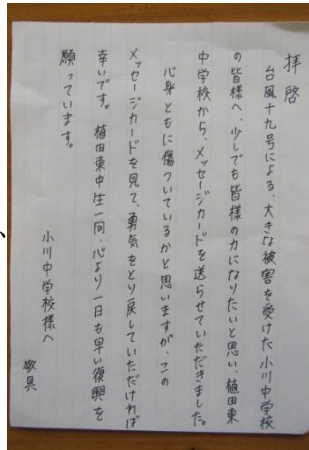 拝啓
台風十九号による、大きな被害を受けた小川中学校
の皆様へ、少しでも皆様の力になりたいと思い、植田東
中学校から、メッセージカードを送らせていただきました。
心身ともに傷ついているかと思いますが、この
メッセージカードを見て、勇気をとり戻していただければ
幸いです。植田東中生一同、心より一日も早い復興を
願っています。
小川中学校様へ
敬具
、